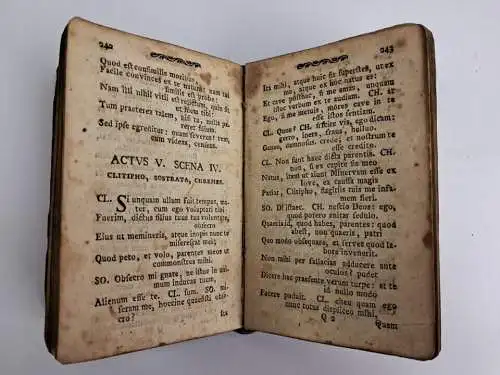 242
Quod est consimilis moribus,
Facile convinces ex te natum: nam tui
similis est probe:
Nam illi nihil vitii est relictum, quin sit
et idem tibi:
Tum praeterea talem, nisi tu, nulla pa-
reret filium.
Sed ipse egreditur: quam severus! rem,
cum videas, censeas.
ACTVS V. SCENA IV.
CLITIPHO, SOSTRATA, CHREMES.
CL. Si unquam ullum fuit tempus, ma-
ter, cum ego voluptati tibi
Fuerim, dictus filius tuus tua voluntate,
obsecro
Eius ut memineris, atque inopis nunc te
miserescat mei:
Quod peto, et volo, parentes meos ut
commonstres mihi.
SO. Obsecro mi gnate, ne istuc in ani-
mum inducas tuum,
Alienum esse te. CL. sum. SO. mi-
seram me, hoccine quaesisti obse-
cro?
Ita
243
Ita mihi, atque huic sis superstes, ut ex
me, atque ex hoc natus es:
Et cave posthac, si me amas, unquam
istuc verbum ex te audiam. CH. at
Ego, si me metuis, mores cave in te
esse istos sentiam.
CL. Quos? CH. si scire vis, ego dicam:
gerro, iners, fraus, helluo,
Ganeo, damnosus. crede; et nostrum te
esse credito.
CL. Non sunt haec dicta parentis. CH.
non, si ex capite sis meo
Natus, item ut aiunt Minervam esse ex
Iove, ea causa magis
Patiar, Clitipho, flagitiis tuis me infa-
mem fieri.
SO. Di istaec. CH. nescio Deos: ego,
quod potero enitar sedulo.
Quaeris id, quod habes, parentes: quod
abest, non quaeris, patri
Quo modo obsequare, et serves quod la-
bore invenerit.
Non mihi per fallacias adducere ante
oculos? pudet
Dicere hac praesente verbum turpe: at te
id nullo modo
Facere puduit. CL. eheu quam ego
nunc totus displiceo mihi,
Q 2
Quam